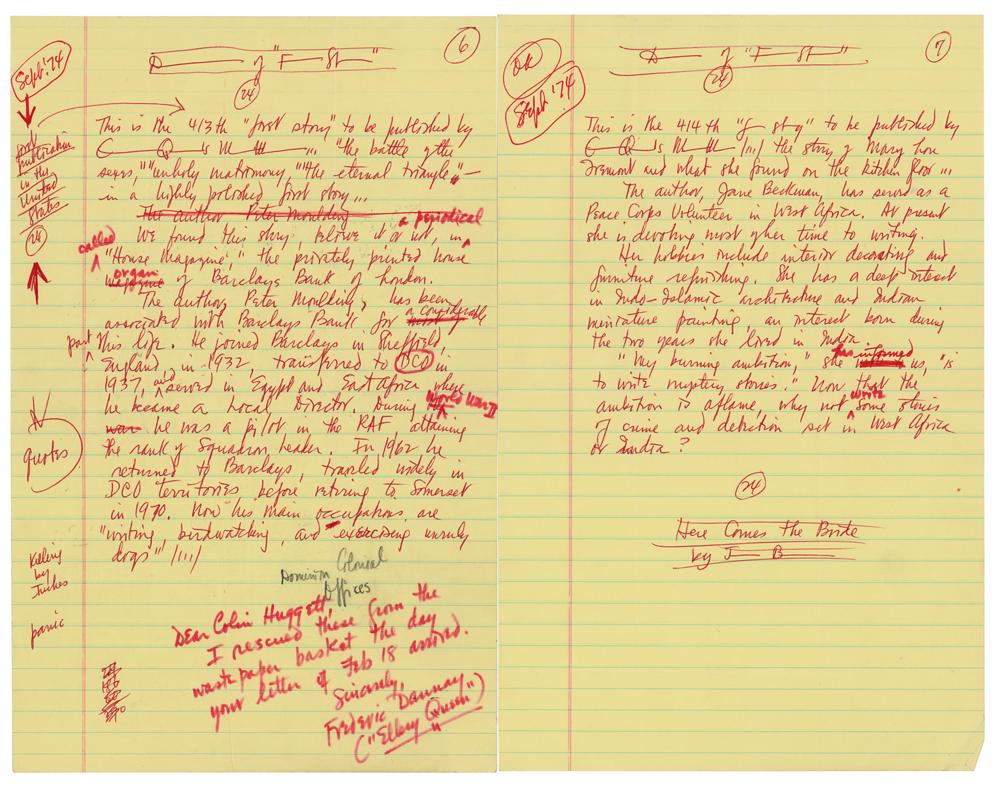 6
Sept. '74
D of "F St"
24
first
publication
in the
United
States
24
This is the 413th "first story" to be published by
E Q 's M M ... "the battle of the
sexes, "unholy matrimony," "the eternal triangle" —
in a highly polished first story...
The author Peter Moulding
We found this story, believe it or not, in a periodical
called "House Magazine," the privately printed house
magazine organ of Barclays Bank of London.
The author, Peter Moulding, has been
associated with Barclays Bank for most a considerable
part his life. He joined Barclays in Sheffield,
England, in 1932, transferred to DCO in
1937, and served in Egypt and East Africa where
he became a Local Director. During the World War II
war he was a pilot in the RAF, attaining
the rank of Squadron Leader. In 1962 he
returned to Barclays, traveled widely in
DCO territories before retiring to Somerset
in 1970. Now his main occupations are
"writing, birdwatching, and exercising unruly
dogs" /.../
quotes
Killing
by
Inches
panic
Dominion Colonial
Offices
Dear Colin Huggett,
I rescued these from the
waste paper basket the day
your letter of Feb 18 arrived.
Sincerely,
Frederic Dannay
("Ellery Queen")
7
OK
Sept. '74
D of "F St"
24
This is the 414th "f story" to be published by
E Q 's M M ... /.../ the story of Mary Lou
Dremont and what she found on the kitchen floor ...
The author, Jane Beckman, has served as a
Peace Corps Volunteer in West Africa. At present
she is devoting most of her time to writing.
Her hobbies include interior decorating and
furniture refinishing. She has a deep interest
in Indo-Islamic architecture and Indian
miniature painting, an interest born during
the two years she lived in India.
"My burning ambition," she has informed us, "is
to write mystery stories." Now that the
ambition is aflame, why not write some stories
of crime and detection set in West Africa
or India?
24
Here Comes the Bride
by J B